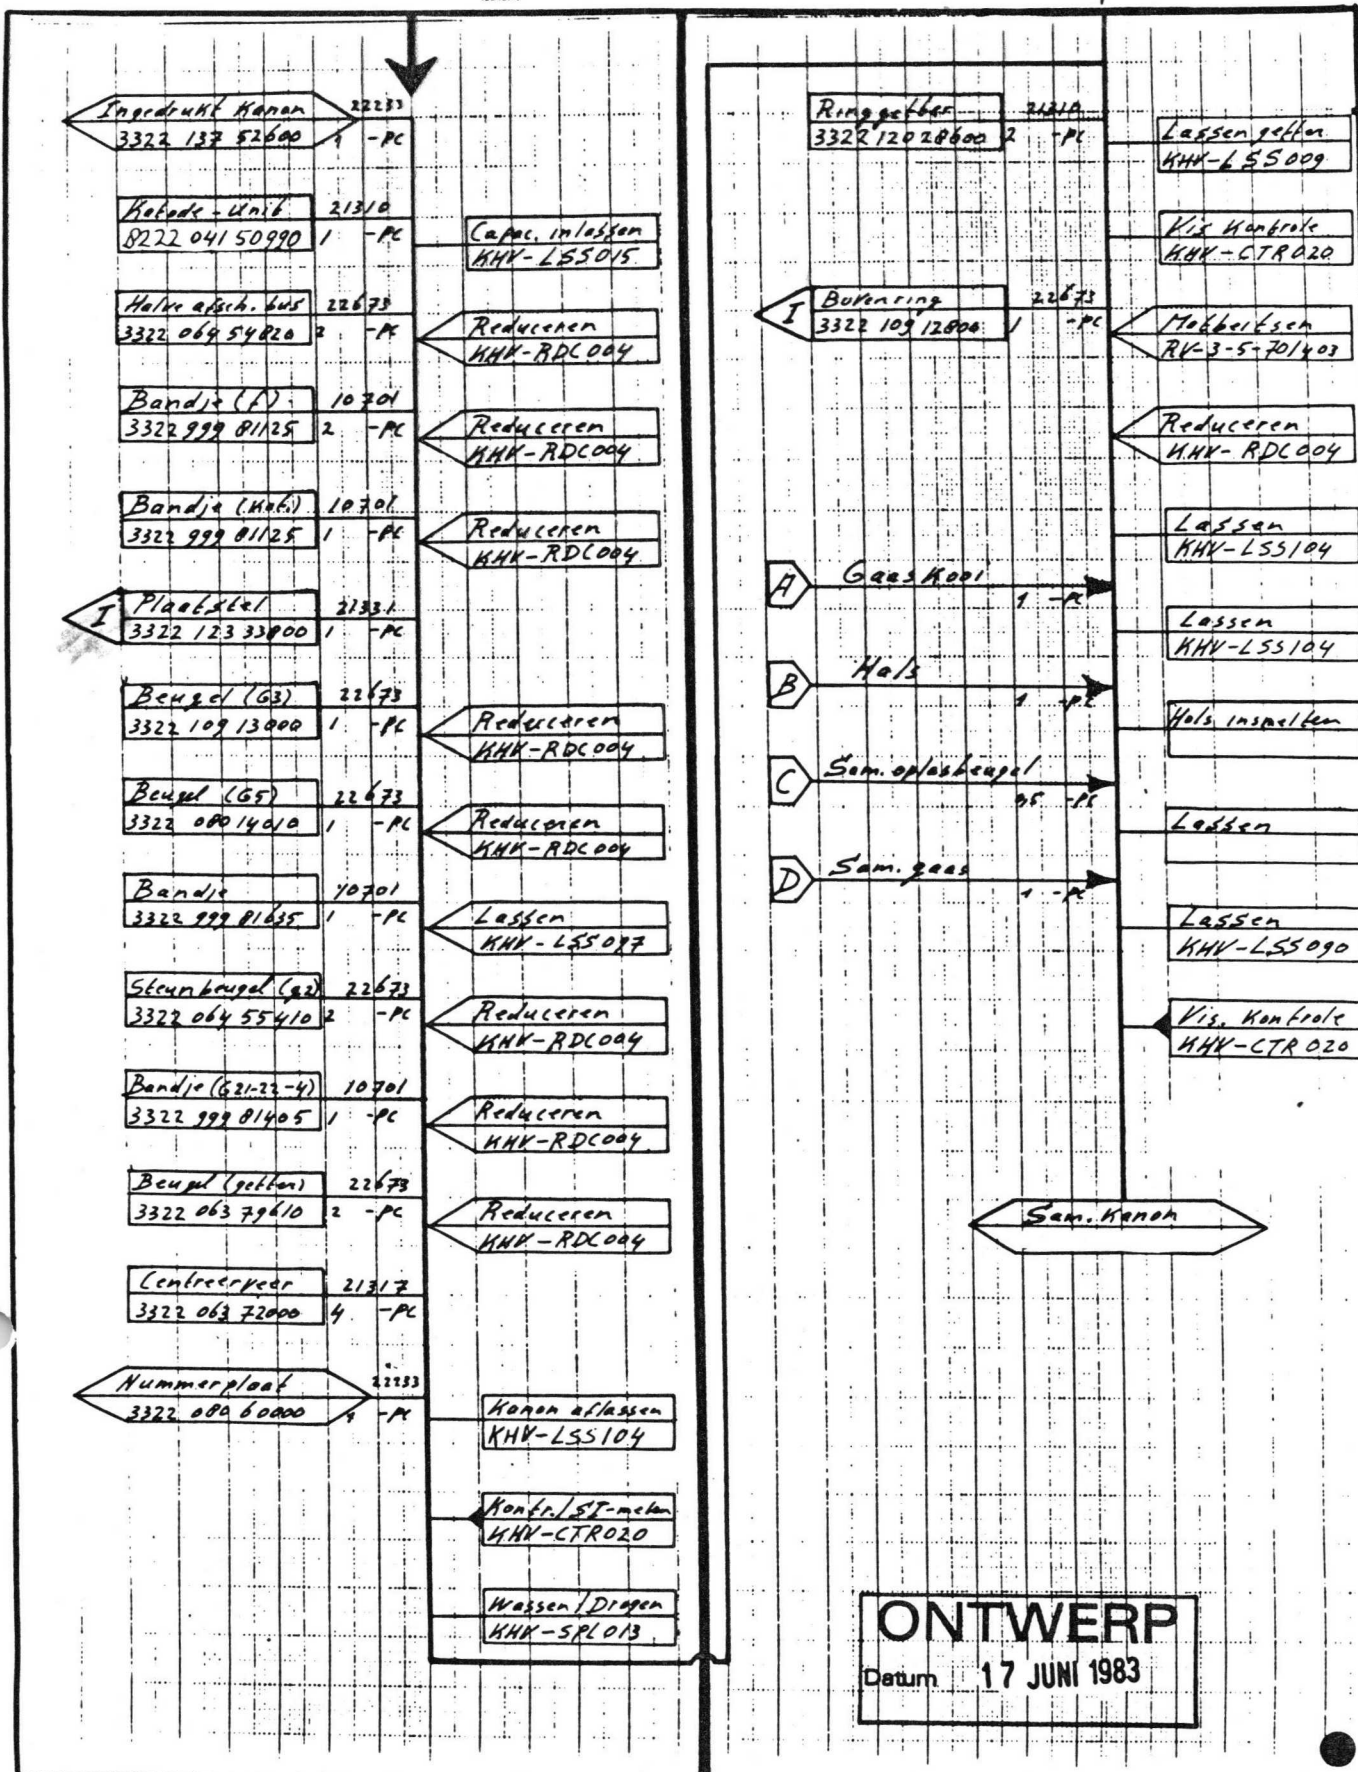 Ingedrukt Kanon 22233
3322 137 52600 1 -PC
Katode-Unit 21310
8222 041 50990 1 -PC
Capac. inlassen
KHV-LSS015
Halve afsch. bus 22673
3322 064 54820 2 -PC
Reduceren
KHV-RDC004
Bandje (f) 10701
3322 999 81125 2 -PC
Reduceren
KHV-RDC004
Bandje (Kat.) 10701
3322 999 81125 1 -PC
Reduceren
KHV-RDC004
I Plaatstel 21331
3322 123 33800 1 -PC
Beugel (G3) 22673
3322 109 13000 1 -PC
Reduceren
KHV-RDC004
Beugel (G5) 22673
3322 080 14010 1 -PC
Reduceren
KHV-RDC004
Bandje 10701
3322 999 81635 1 -PC
Lassen
KHV-LSS097
Steunbeugel (g2) 22673
3322 064 55410 2 -PC
Reduceren
KHV-RDC004
Bandje (G21-22-4) 10701
3322 999 81405 1 -PC
Reduceren
KHV-RDC004
Beugel (getter) 22673
3322 063 79610 2 -PC
Reduceren
KHV-RDC004
Centreerveer 21317
3322 063 72000 4 -PC
Nummerplaat 22233
3322 080 60000 1 -PC
Kanon aflassen
KHV-LSS104
Kontr./SI-meten
KHV-CTR020
Wassen/Drogen
KHV-SPL013
Ringgetter 21310
3322 120 28600 2 -PC
Lassen getter
KHV-LSS009
Vis Kontrole
KHV-CTR020
I Bovenring 22673
3322 109 12804 1 -PC
Matbeitsen
RV-3-5-70/403
Reduceren
KHV-RDC004
Lassen
KHV-LSS104
A Gaaskooi
1 -PC
Lassen
KHV-LSS104
B Hals
1 -PC
Hals insmelten
C Sam. oplasbeugel
-PC
Lassen
D Sam. gaas
1 -PC
Lassen
KHV-LSS090
Vis. Kontrole
KHV-CTR020
Sam. Kanon
ONTWERP
Datum 17 JUNI 1983